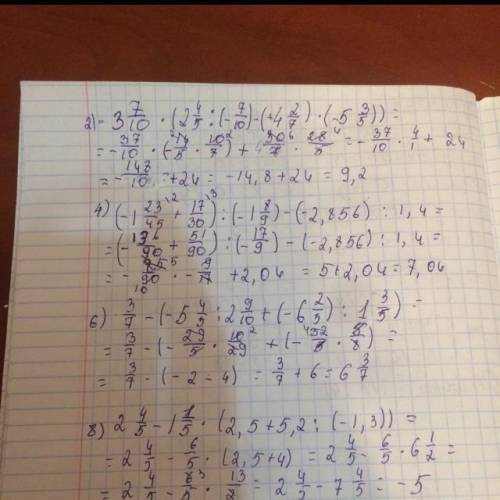 2) - 3 7/10 · (2 4/5 : (- 7/10) - (+4 2/7) · (-5 3/5)) =
= - 37/10 · (- 14/5 · 10/7) + 30/7 · 28/5 = - 37/10 · 4/1 + 24
= - 148/10 = +24 = -14,8 + 24 = 9,2
4) (-1 23/45 + 17/30) : (-1 8/9) - (-2,856) : 1,4 =
= (- 136/90 + 51/90) : (- 17/9) - (-2,856) : 1,4 =
= - 85/90 · - 9/17 + 2,04 = 5 + 2,04 = 7,04
6) 3/7 - (-5 4/5 : 2 9/10 + (-6 2/5) : 1 3/5) =
= 3/7 - (- 29/5 · 10/29 + (- 32/5 · 5/8) =
= 3/7 - (-2 - 4) = 3/7 + 6 = 6 3/7
8) 2 4/5 - 1 1/5 · (2,5 + 5,2 : (-1,3)) =
= 2 4/5 - 6/5 · (2,5 + 4) = 2 4/5 - 6/5 · 6 1/2 =
= 2 4/5 - 6/5 · 13/2 = 2 4/5 - 7 4/5 = -5